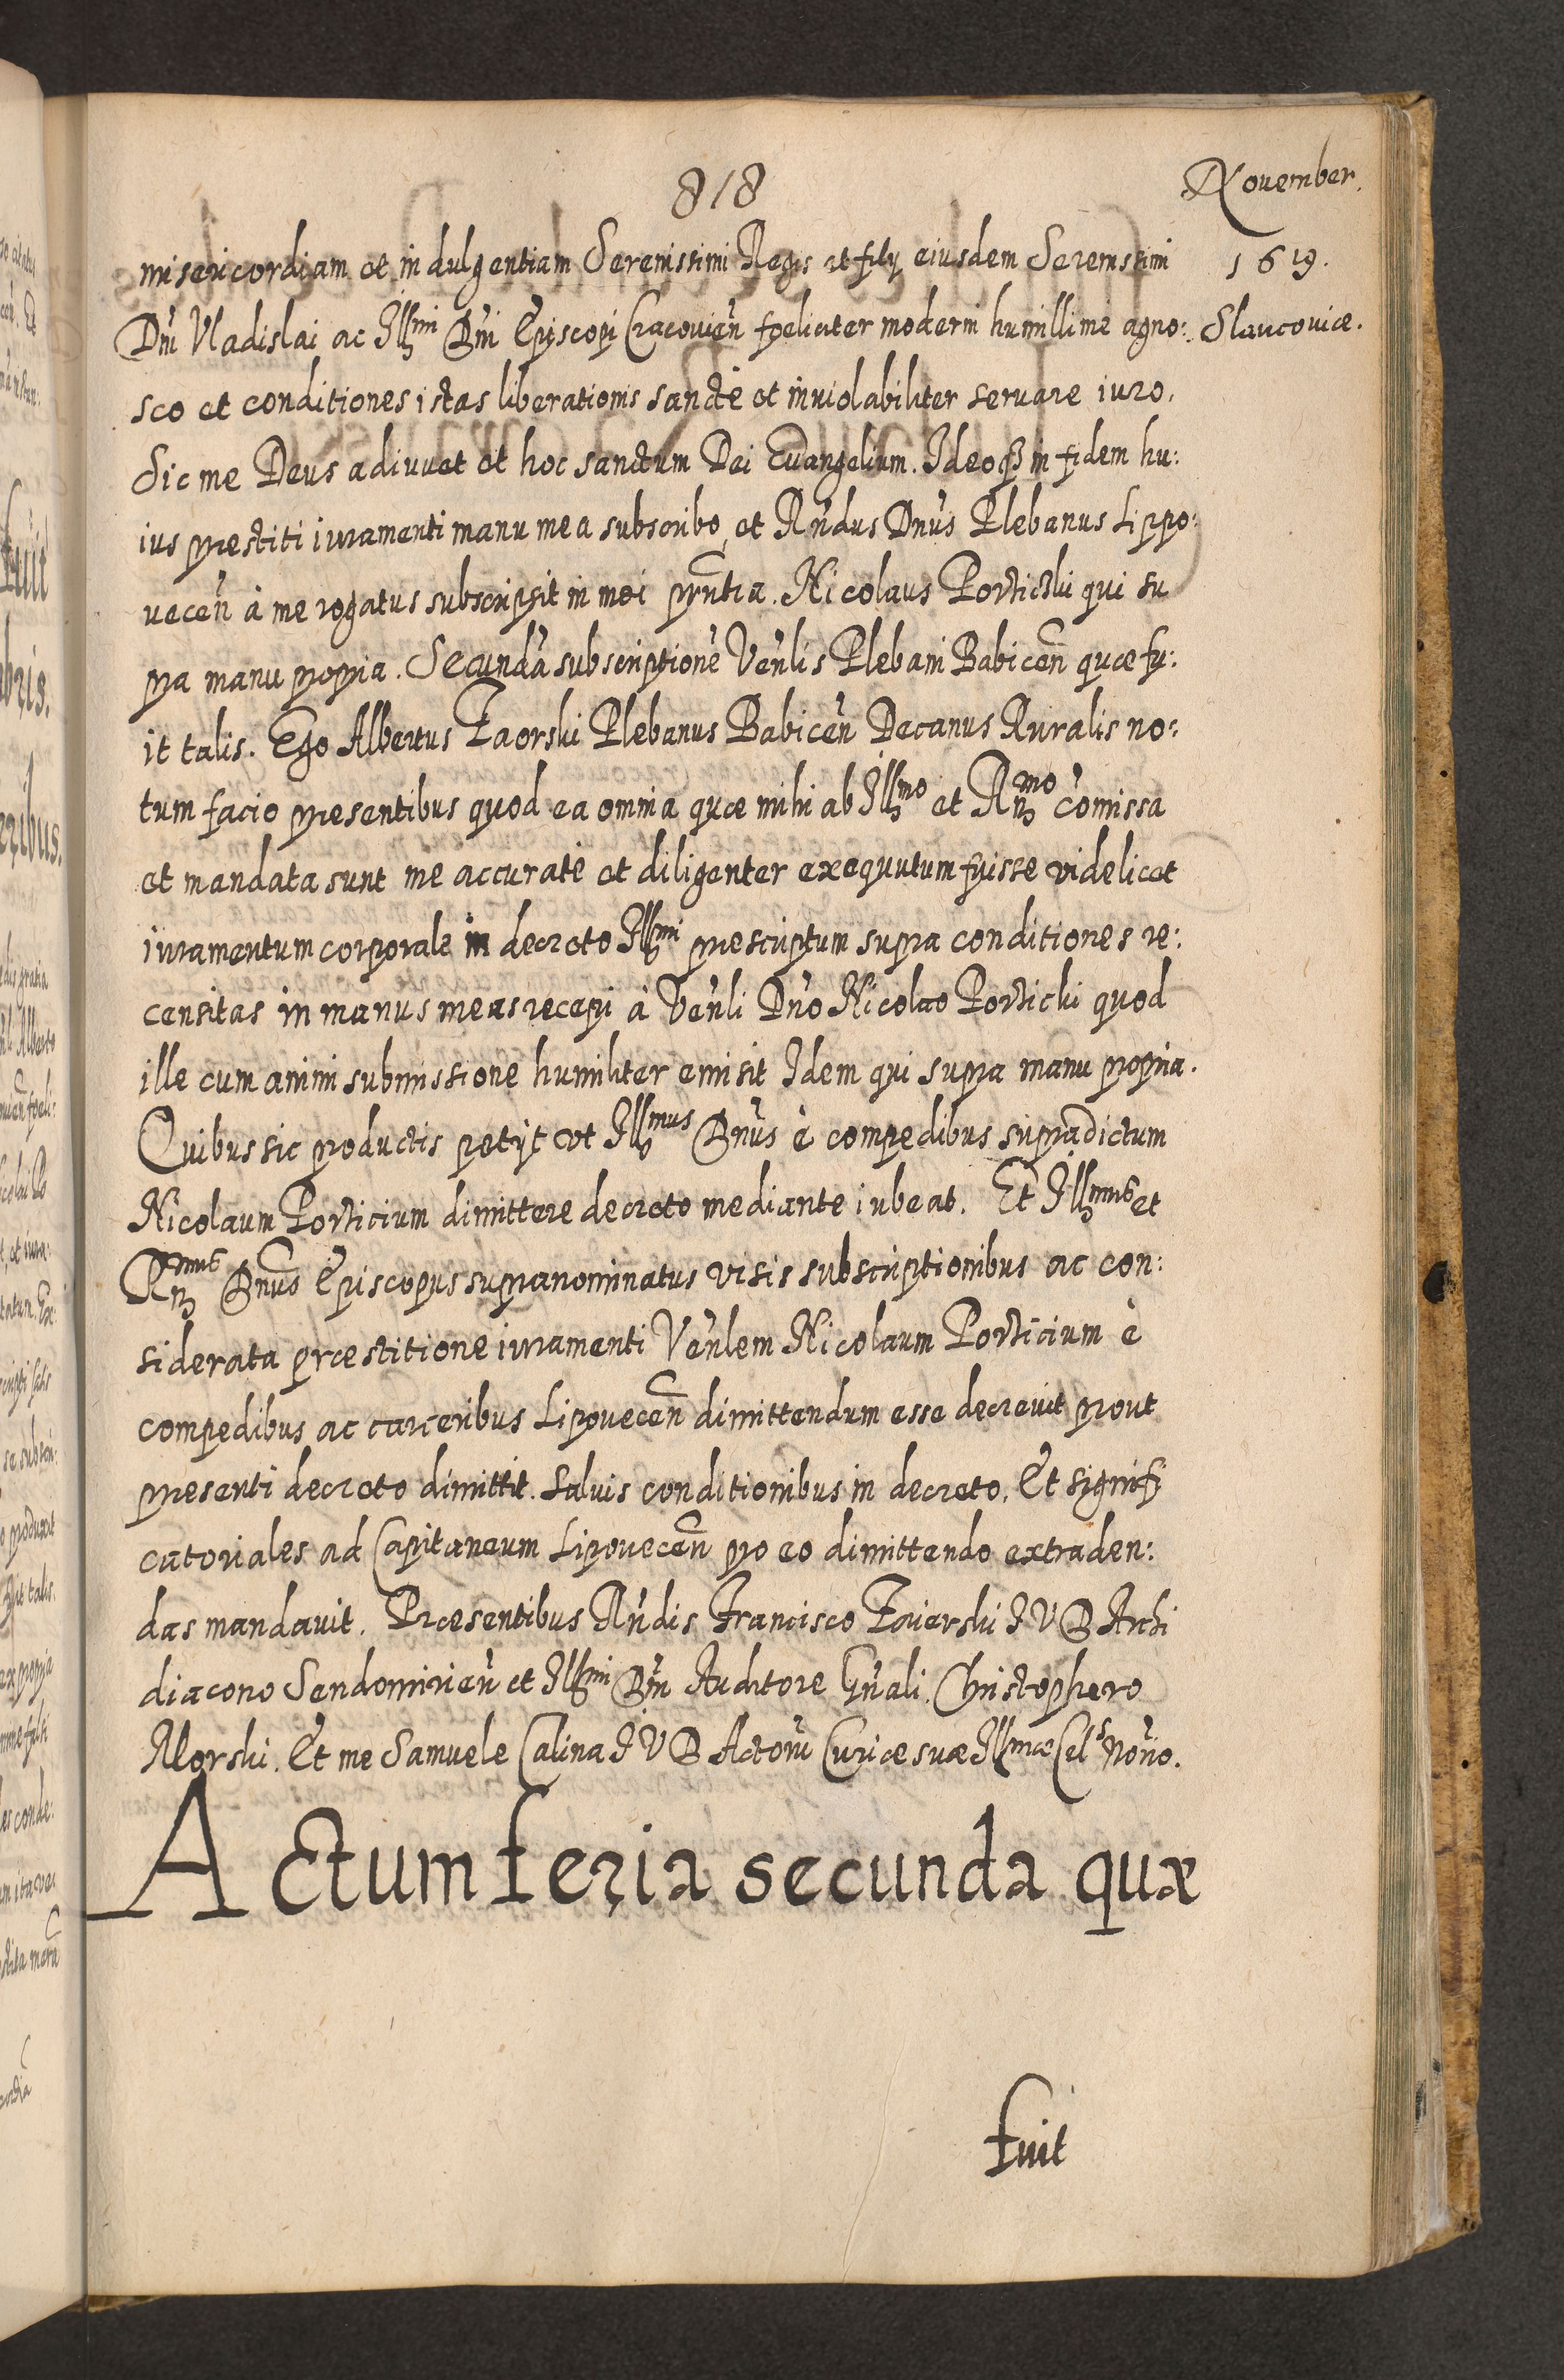 818
November.
misericordiam et indulgentiam Serenissimi Regis et filij eiusdem Serenissimi
1619.
Dni Vladislai ac Illmi Dni Episcopi Cracovien̄ foeliciter moderni humillime agno:
Slavcoviæ.
sco et conditiones istas liberationis sanctè et inviolabiliter servare iuro.
Sic me Deus adiuvet et hoc sanctum Dei Evangelium. Ideoq́ in fidem hu:
ius prestiti iuramenti manu mea subscribo, et Rndus Dnus Plebanus Lippo:
vecen̄ à me rogatus subscripsit in mei prn̄tia. Nicolaus Portichi qui su
pra manu propria. Secundā subscriptionē Venlis Plebani Babicen̄ quæ fu:
it talis. Ego Albertus Zaorski Plebanus Babicen̄ Decanus Ruralis no:
tum facio presentibus quod ea omnia quæ mihi ab Illmo et Rmo cōmissa
et mandata sunt me accuratè et diligenter exequutum fuisse videlicet
iuramentum corporale in decreto Illmi prescriptum supra conditiones re:
censitas in manus meas recepi à Venli Dno Nicolao Portichi quod
ille cum animi submissione humiliter emisit Idem qui supra manu propria.
Quibus sic productis petijt vt Illmus Dnus è compedibus supradictum
Nicolaum Porticium dimittere decreto mediante iubeat. Et Illmus et
Rmus Dnus Episcopus supranominatus visis subscriptionibus ac con:
siderata præstitione iuramenti Venlem Nicolaum Porticium è
compedibus ac carceribus Lipovecen̄ dimittendum esse decrevit prout
presenti decreto dimittit. Salvis conditionibus in decreto. Et signifi
catoriales ad Capitaneum Lipovecen̄ pro eo dimittendo extraden:
das mandavit. Præsentibus Rndis Francisco Zaierski I V D Archi
diacono Sendomirien̄ et Illmi Dni Auditore Gn̄ali. Christophero
Morski. Et me Samuele Calina I V D Actorū Curiæ suæ Illmæ Cels Norio.
Actum feria secunda quæ
Fuit